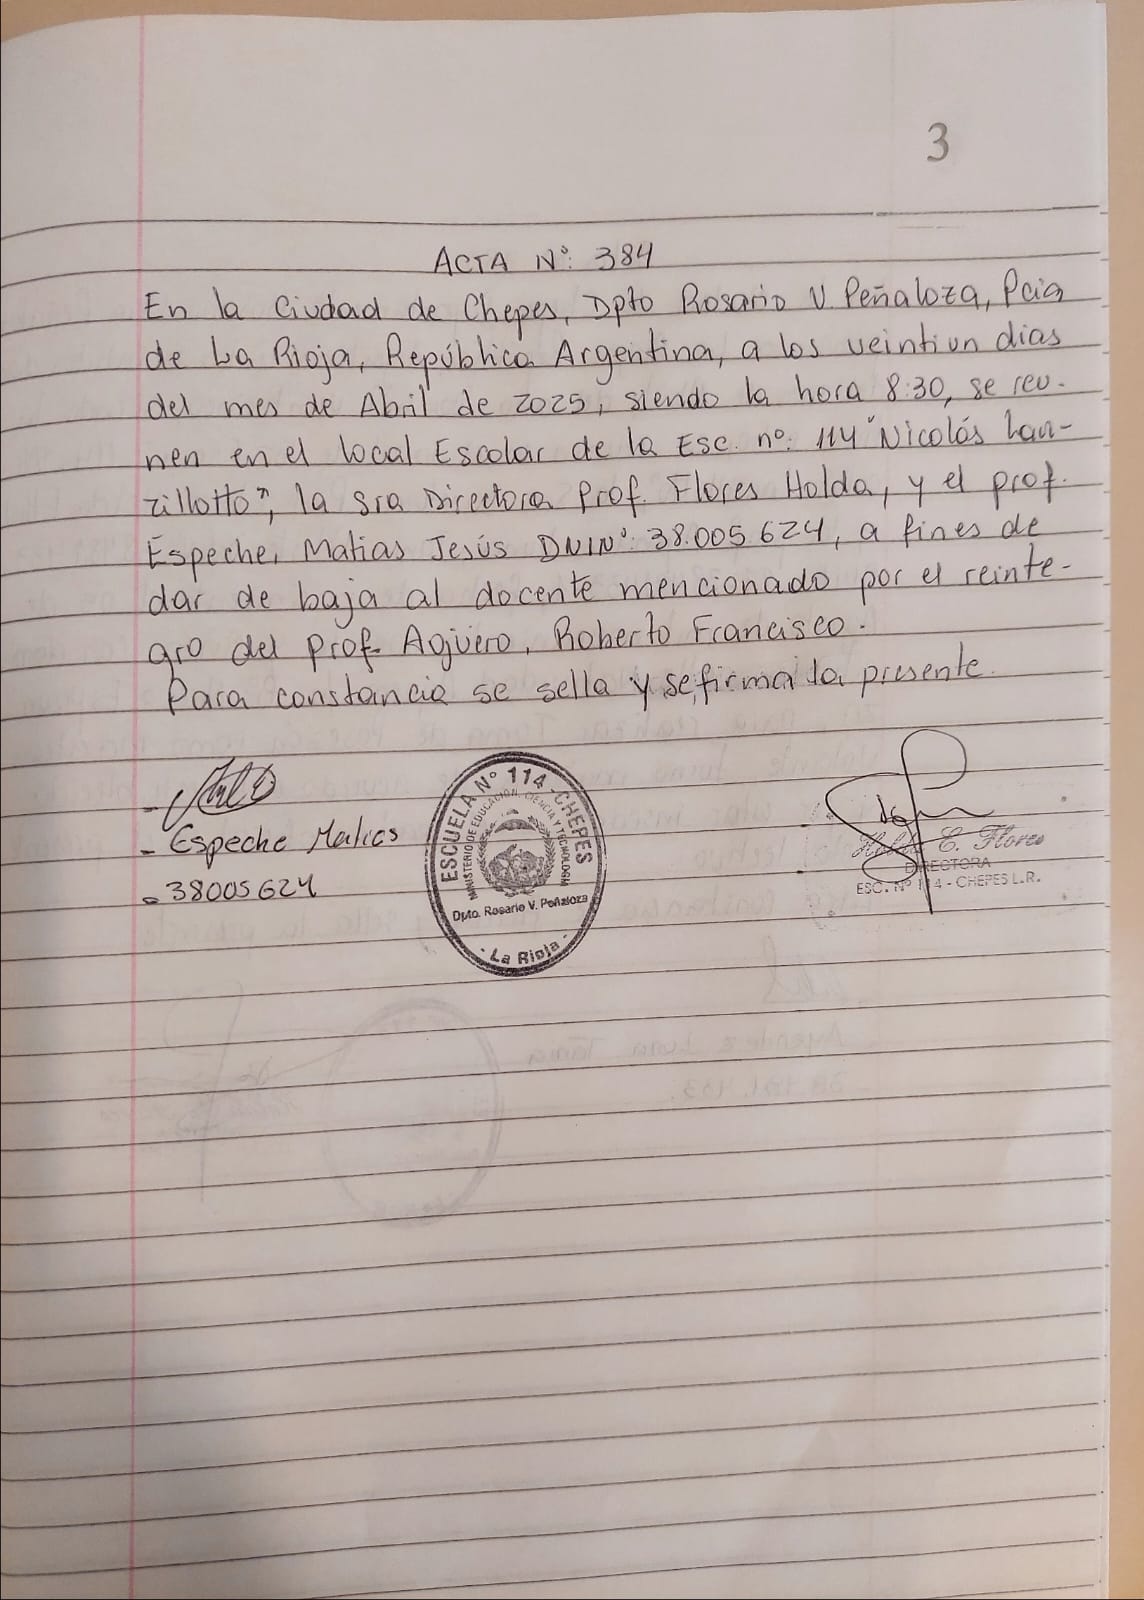 3
ACTA Nº: 384
En la Ciudad de Chepes, Dpto Rosario V. Peñaloza, Pcia
de La Rioja, República Argentina, a los veintiun dias
del mes de Abril de 2025, siendo la hora 8:30, se reu-
nen en el local Escolar de la Esc. nº: 114 "Nicolás Lan-
zillotto", la Sra Directora Prof. Flores Holda, y el prof.
Espeche, Matias Jesús DNI Nº: 38.005.624, a fines de
dar de baja al docente mencionado por el reinte-
gro del prof. Agüero, Roberto Francisco.
Para constancia se sella y se firma la presente.
- Espeche Matias
- 38005624
ESCUELA Nº 114 - CHEPES
MINISTERIO DE EDUCACIÓN, CIENCIA Y TECNOLOGIA
Dpto. Rosario V. Peñaloza
- La Rioja -
Holda C. Flores
DIRECTORA
ESC. Nº 114 - CHEPES L.R.